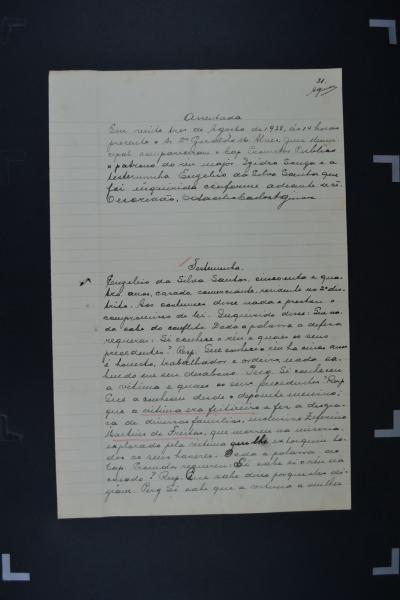 31.
Assentada
Em vinte tres de Agosto de 1938, ás 14 horas
presente o Sr. Dr.
cipal compareceram o Cap. Promotor Publico
o patrono do reu major Izidro Souza e a
testemunha Eugelio da Silva Santos que
foi inquirida conforme adeante se vê.
Eu escrivão,
Testemunha.
Eugelio da Silva Santos, cincoenta e qua-
tro anos, casado, comerciante, residente no 2º dis-
trito. Aos costumes disse nada e prestou o
compromisso de lei. Inquirido disse: Que na-
da sabe do conflito. Dada a palavra a defesa
requereu: Si conhece o reu e quaes os seus
precedentes? Resp. Que conhece o reu ha cinco anos
é honesto, trabalhador e ordeiro nada sa-
bendo em seu desabono. Perg. Si conheceu
a vitima e quaes os seus precedentes? Resp.
Que a conheceu desde o depoente menino;
que a vitima era
de diversas familias, inclusive Zeferino
Martins de Freitas, que morreu na miseria
explorado pela vitima que lhe to-
dos os seus haveres. Dada a palavra ao
Cap. Promotor requereu: Si sabe si o reu era
casado? Resp. Que sabe disso porque lhe di-
ziam. Perg. Si sabe que a vitima a mulher